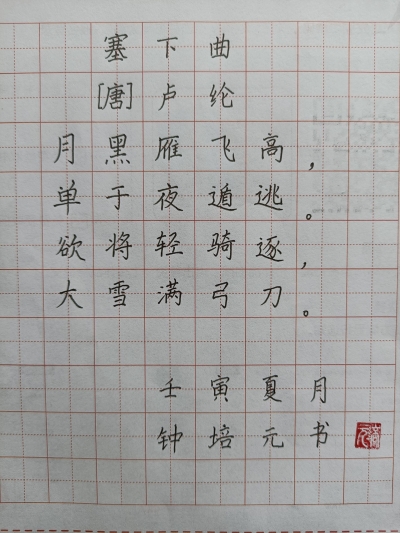 塞下曲
[唐]卢纶
月黑雁飞高，
单于夜遁逃。
欲将轻骑逐，
大雪满弓刀。
壬寅夏月
钟培元书